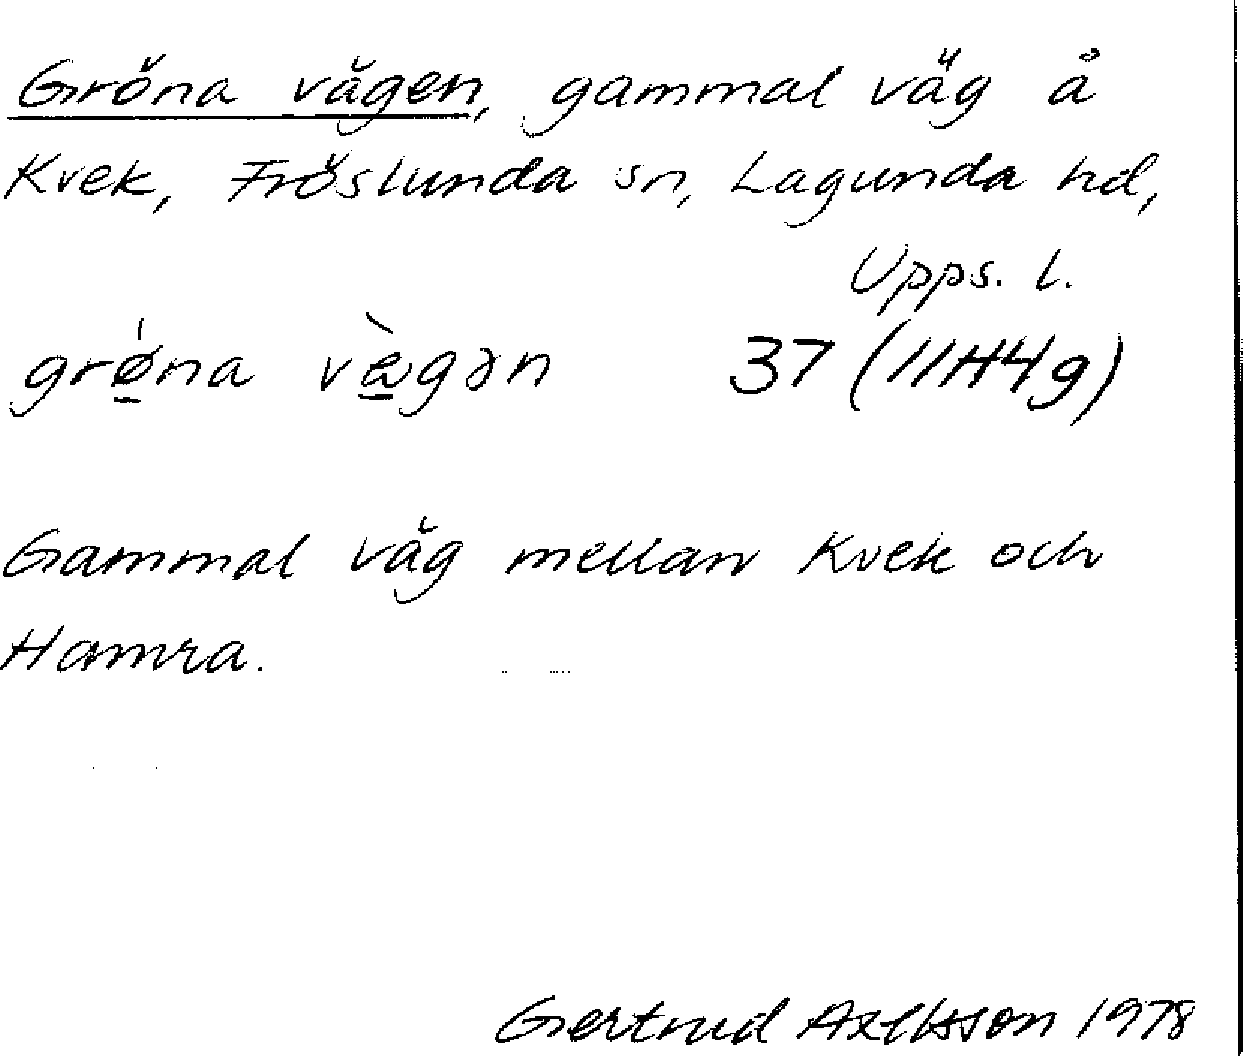 Gröna vägen, gammal väg å
Kvek, Fröslunda sn, Lagunda hd,
Upps. l.
grǿ̱na væ̱̀gən 37 (11H4g)
Gammal väg mellan Kvek och
Hamra.
Gertrud Axelsson 1978